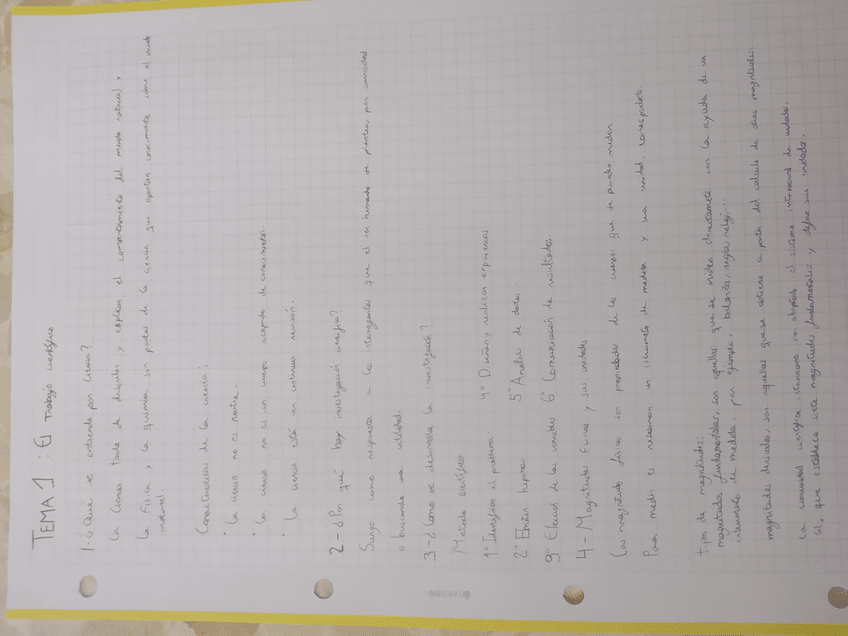 TEMA 1: El Trabajo científico
1-¿Qué se entiende por ciencia?
La Ciencia trata de describir y explicar el comportamiento del mundo natural y
la Física y la química son partes de la ciencia que aportan conocimiento sobre el mundo
material.
Características de la ciencia:
· La ciencia no es neutra.
· La ciencia no es un cuerpo acabado de conocimiento.
· La ciencia está en continua revisión.
2-¿Por qué hay investigación científica?
Surge como respuesta a los interrogantes que el ser humano se plantea por curiosidad
o buscando una utilidad.
3-¿Cómo se desarrolla la investigación?
Método científico
1º Identificar el problema 4º Diseñar, realizar experiencias.
2º Emitir hipótesis 5º Análisis de datos.
3º Elección de las variables 6º Comunicación de resultados.
4- Magnitudes Físicas y sus unidades
Las magnitudes físicas son propiedades de los cuerpos que se pueden medir
Para medir es necesario un instrumento de medida y una unidad correspondiente.
Tipos de magnitudes:
magnitudes fundamentales, son aquellas que se miden directamente con la ayuda de un
instrumento de medida por ejemplo: balanza, regla, reloj...
magnitudes derivadas, son aquellas que se obtiene a partir del calculo de otras magnitudes.
La comunidad científica internacional ha adoptado el sistema internacional de unidades.
SI, que establece siete magnitudes fundamentales y define sus unidades.